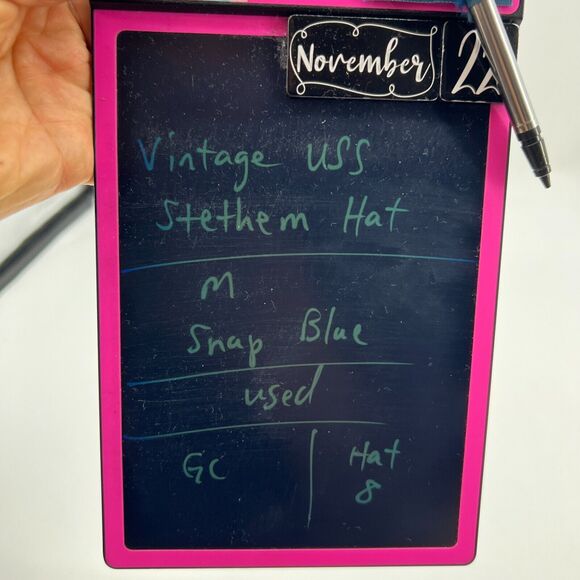 November 22
Vintage USS
Stethem Hat
M
Snap Blue
used
GC Hat
8